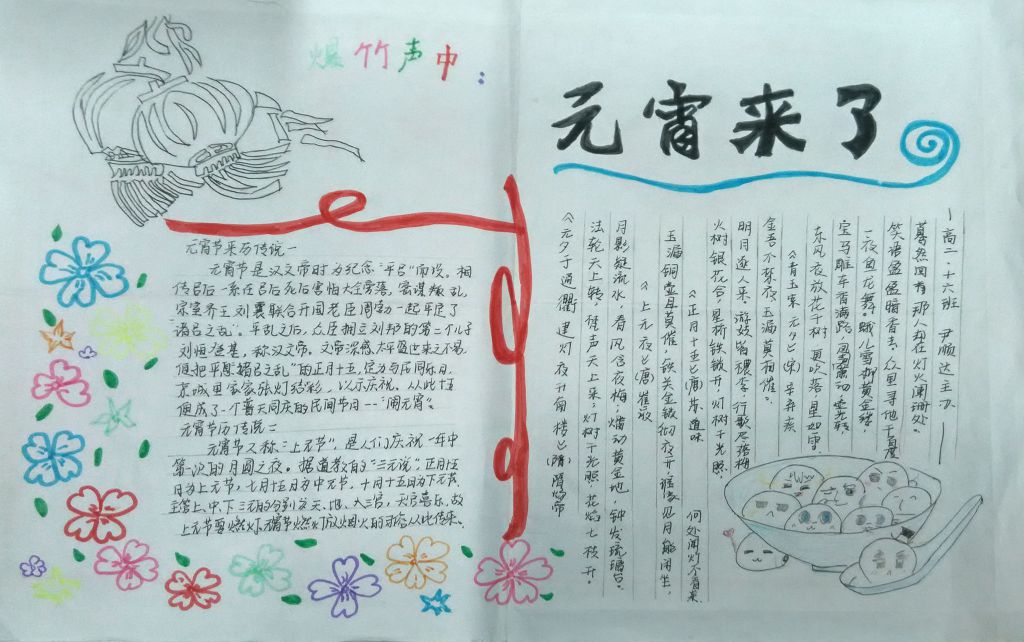 爆竹声中:
元宵来了
元宵节来历传说一
元宵节是汉文帝时为纪念"平吕"而设。相
传吕后一系在吕后死后害怕大全旁落,密谋叛乱,
宋室齐王刘襄联合开国老臣周勃一起平定了
"诸吕之乱"。平乱之后,众臣拥立刘邦的第二个儿子
刘恒登基,称汉文帝。文帝深感太平盛世来之不易,
便把平息"诸吕之乱"的正月十五,定为与民同乐日,
京城里家家张灯结彩,以示庆祝。从此十五
便成了一个普天同庆的民间节日--"闹元宵"。
元宵节历传说二
元宵节又称"上元节",是人们庆祝一年中
第一次的月圆之夜。据道教的"三元说",正月十五
日为上元节,七月十五为中元节,十月十五日为下元节。
主管上、中、下三元的分别为天、地、人三官,天官喜乐,故
上元节要燃灯。元宵节燃灯放烟火的习俗从此传来。
《元夕于通衢建灯夜升南楼》(隋)隋炀帝
法轮天上转,梵声天上来;灯树千光照,花焰七枝开。
月影疑流水,春风含夜梅;燔动黄金地,钟发琉璃台。
《上元夜》(唐)崔液
玉漏铜壶且莫催,铁关金锁彻夜开;谁家见月能闲坐,
何处闻灯不看来。
《正月十五》(唐)苏道味
火树银花合,星桥铁锁开,灯树千光照。
明月逐人来。游妓皆秾李,行歌尽落梅
金吾不禁夜,玉漏莫相催。
《青玉案 元夕》(宋)辛弃疾
东风夜放花千树,更吹落,星如雨。
宝马雕车香满路。凤箫声动,壶光转,
一夜鱼龙舞。蛾儿雪柳黄金缕,
笑语盈盈暗香去,众里寻他千百度
蓦然回首那人却在灯火阑珊处。
—高二·十六班 尹顺达主办—